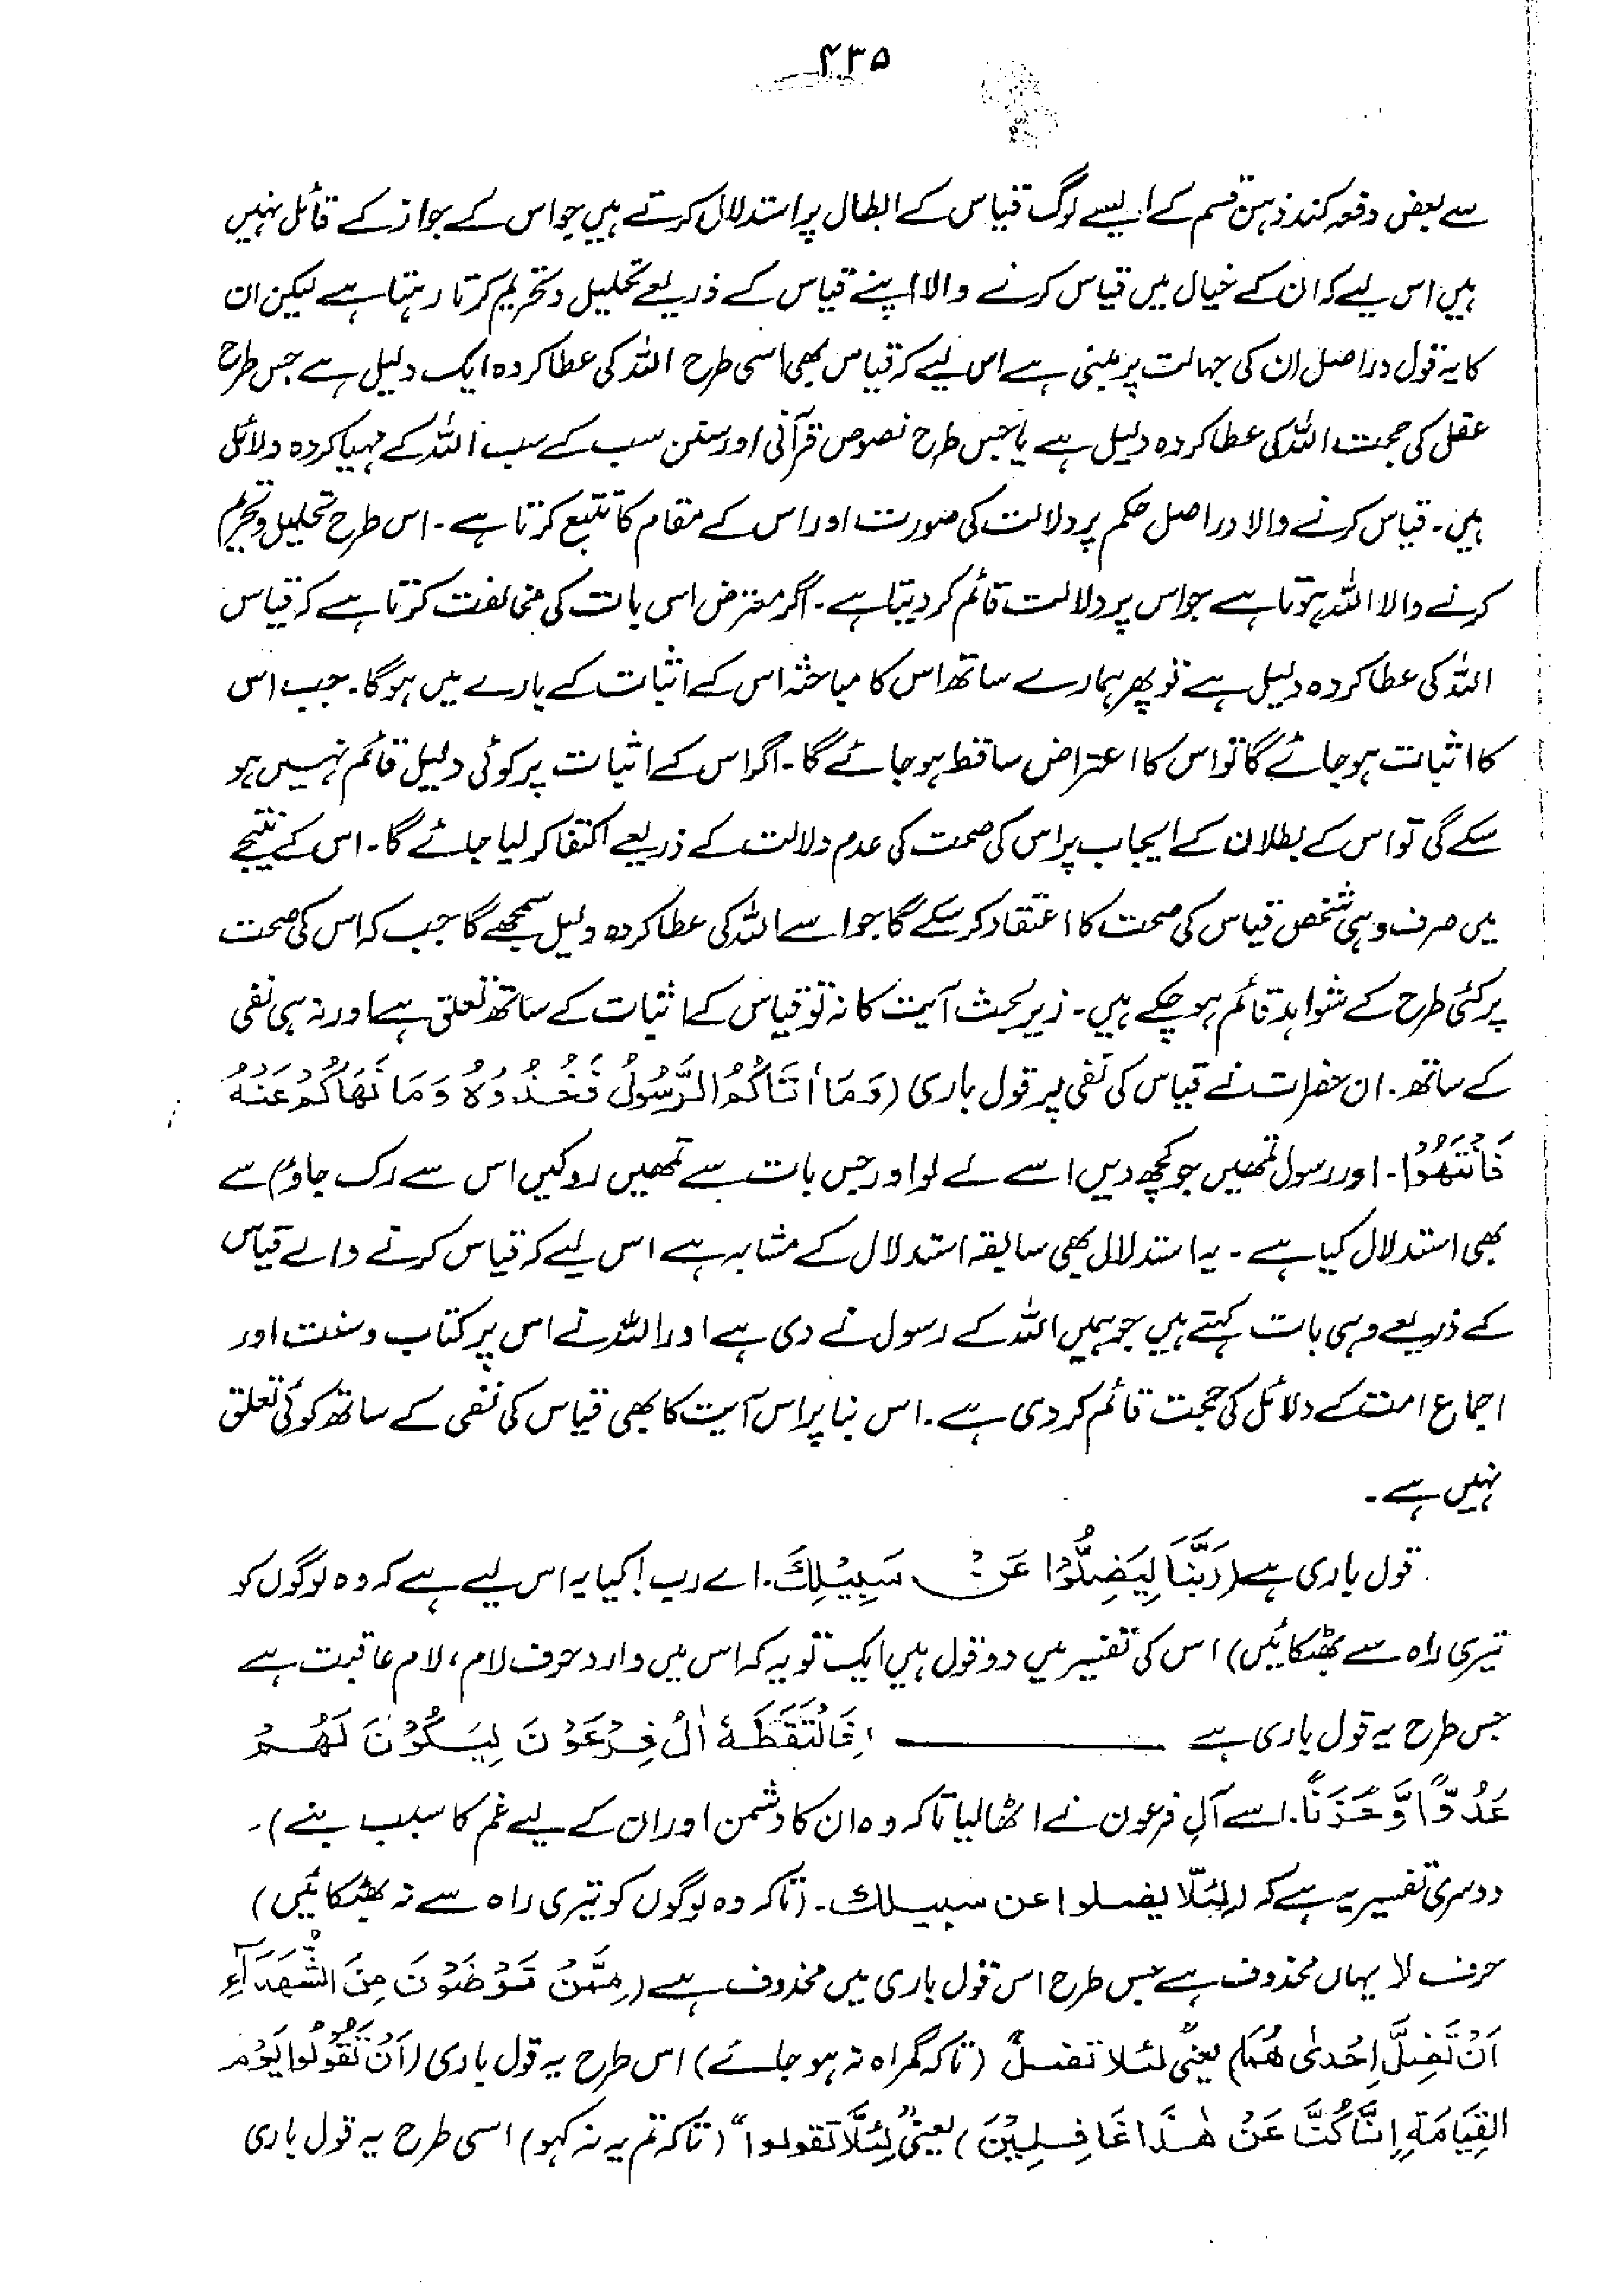 ۴۳۵
سے بعض دفعہ کند ذہن قسم کے ایسے لوگ قیاس کے ابطال پر استدلال کرتے ہیں جو اس کے جواز کے قائل نہیں
ہیں اس لیے کہ ان کے خیال میں قیاس کرنے والا اپنے قیاس کے ذریعے تحلیل و تحریم کرتا رہتا ہے لیکن ان
کا یہ قول دراصل ان کی جہالت پر مبنی ہے اس لیے کہ قیاس بھی اسی طرح اللہ کی عطا کردہ ایک دلیل ہے جس طرح
عقل کی حجت اللہ کی عطا کردہ دلیل ہے یا جس طرح نصوص قرآنی اور سنن سب کے سب اللہ کے مہیا کردہ دلائل
ہیں۔ قیاس کرنے والا دراصل حکم پر دلالت کی صورت اور اس کے مقام کا تتبع کرتا ہے۔ اس طرح تحلیل و تحریم
کرنے والا اللہ ہوتا ہے جو اس پر دلالت قائم کر دیتا ہے۔ اگر معترض اس بات کی مخالفت کرتا ہے کہ قیاس
اللہ کی عطا کردہ دلیل ہے تو پھر ہمارے ساتھ اس کا مباحثہ اس کے اثبات کے بارے میں ہوگا۔ جب اس
کا اثبات ہو جائے گا تو اس کا اعتراض ساقط ہو جائے گا۔ اگر اس کے اثبات پر کوئی دلیل قائم نہیں ہو
سکے گی تو اس کے بطلان کے ایجاب پر اس کی صحت کی عدم دلالت کے ذریعے اکتفا کر لیا جائے گا۔ اس کے نتیجے
میں صرف وہی شخص قیاس کی صحت کا اعتقاد کر سکے گا جو اسے اللہ کی عطا کردہ دلیل سمجھے گا جب کہ اس کی صحت
پر کئی طرح کے شواہد قائم ہو چکے ہیں۔ زیر بحث آیت کا نہ تو قیاس کے اثبات کے ساتھ تعلق ہے اور نہ ہی نفی
کے ساتھ۔ ان حضرات نے قیاس کی نفی پر قول باری (وَمَا أَتَاكُمُ الرَّسُولُ فَخُذُوهُ وَمَا نَهَاكُمْ عَنْهُ
فَانْتَهُوْا۔ اور رسول تمھیں جو کچھ دیں اسے لے لو اور جس بات سے تمھیں روکیں اس سے رک جاؤ) سے
بھی استدلال کیا ہے۔ یہ استدلال بھی سابقہ استدلال کے مشابہ ہے اس لیے کہ قیاس کرنے والے قیاس
کے ذریعے وہی بات کہتے ہیں جو ہمیں اللہ کے رسول نے دی ہے اور اللہ نے اس پر کتاب و سنت اور
اجماع امت کے دلائل کی حجت قائم کر دی ہے۔ اس بنا پر اس آیت کا بھی قیاس کی نفی کے ساتھ کوئی تعلق
نہیں ہے۔
قول باری ہے (رَبَّنَا لِيَضِلُّوْا عَنْ سَبِيْلِكَ۔ اے رب! کیا یہ اس لیے ہے کہ وہ لوگوں کو
تیری راہ سے بھٹکائیں) اس کی تفسیر میں دو قول ہیں ایک تو یہ کہ اس میں وارد حرف لام، لام عاقبت ہے
جس طرح یہ قول باری ہے ـــــــــ (فَالْتَقَطَهٗ اٰلُ فِرْعَوْنَ لِيَكُوْنَ لَهُمْ
عَدُوًّا وَّحَزَنًا۔ اسے آل فرعون نے اٹھا لیا تاکہ وہ ان کا دشمن اور ان کے لیے غم کا سبب بنے)۔
دوسری تفسیر یہ ہے کہ (لِئَلَّا يضلوا عن سبيلك۔ (تاکہ وہ لوگوں کو تیری راہ سے نہ بھٹکائیں)
حرف لا یہاں محذوف ہے جس طرح اس قول باری میں محذوف ہے (مِمَّنْ تَرْضَوْنَ مِنَ الشُّهَدَآءِ
اَنْ تَضِلَّ اِحْدٰى هُمَا) یعنی لئلا تضل" (تاکہ گمراہ نہ ہو جائے) اس طرح یہ قول باری (اَنْ تَقُوْلُوْا يَوْمَ
الْقِيَامَةِ اِنَّا كُنَّا عَنْ هٰذَا غَافِلِيْنَ) یعنی "لِئَلَّا تقولوا" (تاکہ تم یہ نہ کہو) اسی طرح یہ قول باری